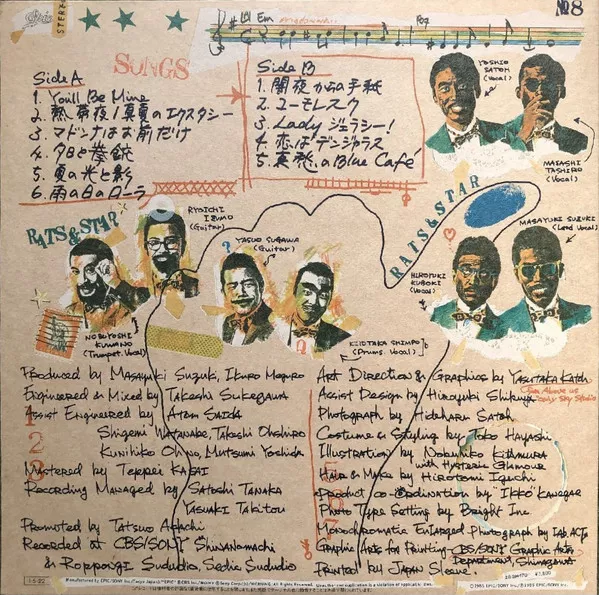 Epic
STEREO
No 8
Em
SONGS
Side A
1. You'll Be Mine
2. 熱帯夜/真夏のエクスタシー
3. マドンナはお前だけ
4. 夕日と拳銃
5. 夏の光と影
6. 雨の日のローラ
Side B
1. 闇夜からの手紙
2. ユーモレスク
3. Lady ジェラシー!
4. 恋はデンジャラス
5. 哀愁のBlue Café
YOSHIO
SATOH
(Vocal)
MASASHI
TASHIRO
(Vocal)
RATS & STAR
RYOICHI
IZUMO
(Guitar)
YASUO SUGAWA
(Guitar)
RATS & STAR
MASAYUKI SUZUKI
(Lead Vocal)
HIROYUKI
KUBOKI
(Vocal)
NOBUYOSHI
KUWANO
(Trumpet. Vocal)
KIYOTAKA SHIMPO
(Drums. Vocal)
Produced by Masayuki Suzuki, Ikuro Meguro
Engineered & Mixed by Takeshi Sukegawa
Assist Engineered by Atom Saida
Shigemi Watanabe, Takeshi Ohshiro
Kunihiko Ohno, Mutsumi Yoshida
Mastered by Teppei KASAI
Recording Managed by Satoshi TANAKA
YASUAKI TAKITOU
Promoted by Tatsuo Adachi
Recorded at CBS/SONY Shinanomachi
& Roppongi Sududio, Sedic Sududio
Art Direction & Graphics by YASUTAKA Katoh
Assist Design by Hiroyuki
Photograph by Hideharu Satoh
Costume & Styling by Toko Hayashi
Illustration by Nobuhiko Kitamura
with Hysteric Glamour
Hair & Make by Hirotomi Iguchi
Product co-ordination by 'IKKO' Kanegae
Photo Type Setting by Bright Inc.
Monochromatic Enlarged Photograph by Lab. ACT
Graphic Arts for Printing - CBS/SONY Graphic Arts
Department, Shinagawa
Printed by JAPAN Sleeve.
¥1,500